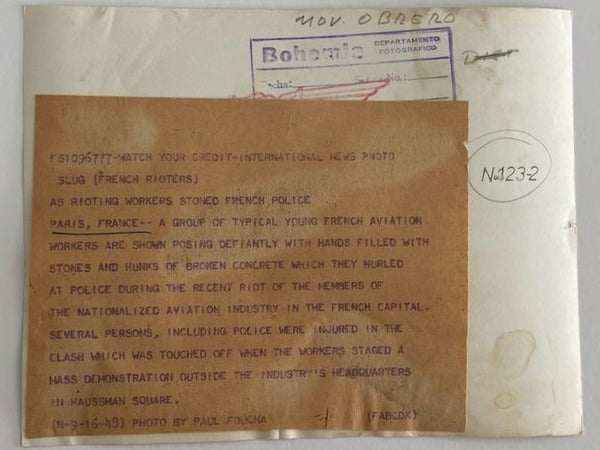 MOV. OBRERO
Bohemia DEPARTAMENTO
FOTOGRAFICO
Fecha: No.:
No 123-2
FS1096777-WATCH YOUR CREDIT-INTERNATIONAL NEWS PHOTO
SLUG (FRENCH RIOTERS)
AS RIOTING WORKERS STONED FRENCH POLICE
PARIS, FRANCE-- A GROUP OF TYPICAL YOUNG FRENCH AVIATION
WORKERS ARE SHOWN POSING DEFIANTLY WITH HANDS FILLED WITH
STONES AND HUNKS OF BROKEN CONCRETE WHICH THEY HURLED
AT POLICE DURING THE RECENT RIOT OF THE MEMBERS OF
THE NATIONALIZED AVIATION INDUSTRY IN THE FRENCH CAPITAL.
SEVERAL PERSONS, INCLUDING POLICE WERE INJURED IN THE
CLASH WHICH WAS TOUCHED OFF WHEN THE WORKERS STAGED A
MASS DEMONSTRATION OUTSIDE THE INDUSTRY'S HEADQUARTERS
IN HAUSSMAN SQUARE.
(M-9-16-48) PHOTO BY PAUL FOUCHA (FABCDX)